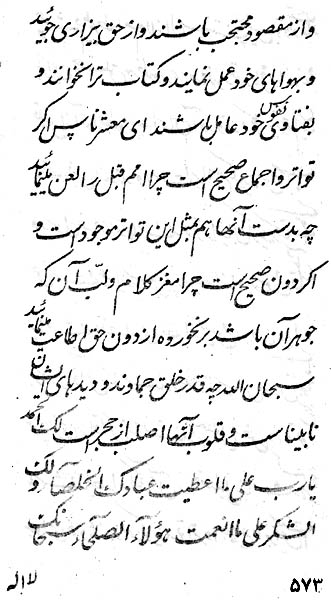 و از مقصود محتجب باشند و از حق بیزاری جویند
و بهواهای خود عمل نمایند و کتاب ترا نخوانند و
بفتاوی نفوس خود عامل باشند ای معشر ناس اگر
تواتر و اجماع صحیح است چرا امم قبل را لعن مینمائید
چه بدست آنها هم مثل این تواتر موجود است و
اگر دون صحیح است چرا مغز کلام و لب آن که
جوهر آن باشد بر نخورده از دون حق اطاعت مینمائید
سبحان الله چه قدر خلق جمادند و دیدهای ایشان
نابینا است و قلوب آنها اصلب از حجر است لک الحمد
یا رب علی ما اعطیت عبادک المخلصاء و لک
الشکر علی ما انعمت هؤلاء الصلحاء سبحانک
لا اله
۵۷۳